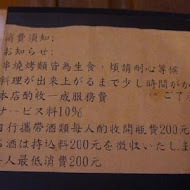 消費須知:
お知らせ:
串燒烤類皆為生食,煩請耐心等候
料理が出来上がるまで少し時間がか
本店酌收一成服務費 ご了
サービス料10%
自行攜帶酒類每人酌收開瓶費200元
お酒は持込料200元を徴收いたしま
每人最低消費200元